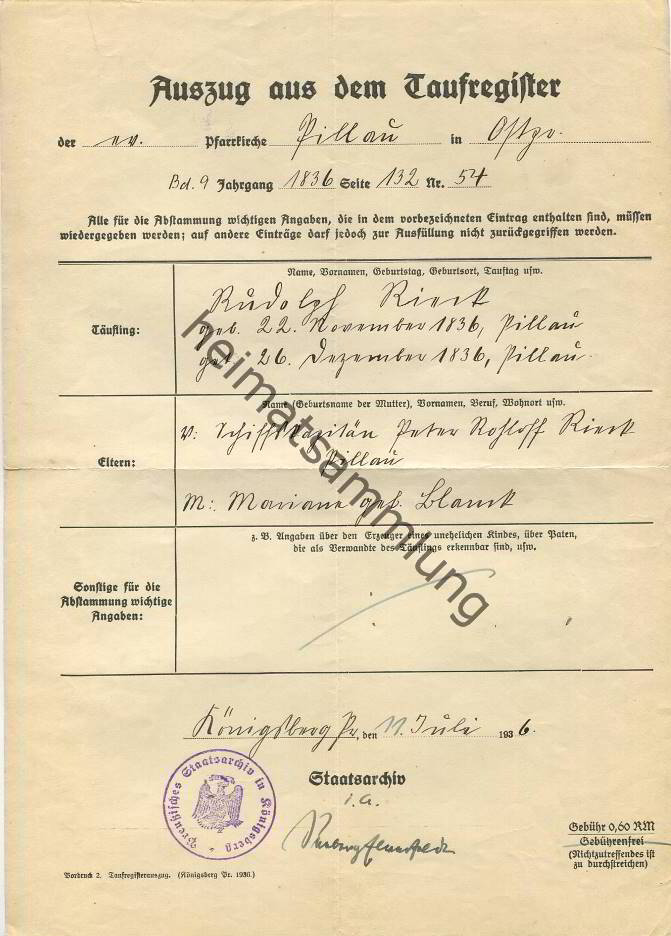 Auszug aus dem Taufregister
der ev. Pfarrkirche Pillau in Ostpr.
Bd. 9 Jahrgang 1836 Seite 132 Nr. 54
Alle für die Abstammung wichtigen Angaben, die in dem vorbezeichneten Eintrag enthalten sind, müssen
wiedergegeben werden; auf andere Einträge darf jedoch zur Ausfüllung nicht zurückgegriffen werden.
Name, Vornamen, Geburtstag, Geburtsort, Tauftag usw.
Täufling:
Rudolph Rieck
geb. 22. November 1836, Pillau
get. 26. Dezember 1836, Pillau.
Name (Geburtsname der Mutter), Vornamen, Beruf, Wohnort usw.
Eltern:
V: Schiffskapitän Peter Rohloff Rieck
Pillau
M: Mariane geb. Blanck
z. B. Angaben über den Erzeuger eines unehelichen Kindes, über Paten,
die als Verwandte des Täuflings erkennbar sind, usw.
Sonstige für die
Abstammung wichtige
Angaben:
heimatsammlung
Königsberg Pr, den 11. Juli 1936.
Staatsarchiv
i.A.
Preußisches Staatsarchiv in Königsberg
Gebühr 0,60 RM
Gebührenfrei
(Nichtzutreffendes ist
zu durchstreichen)
Vordruck 2. Taufregisterauszug. (Königsberg Pr. 1936.)